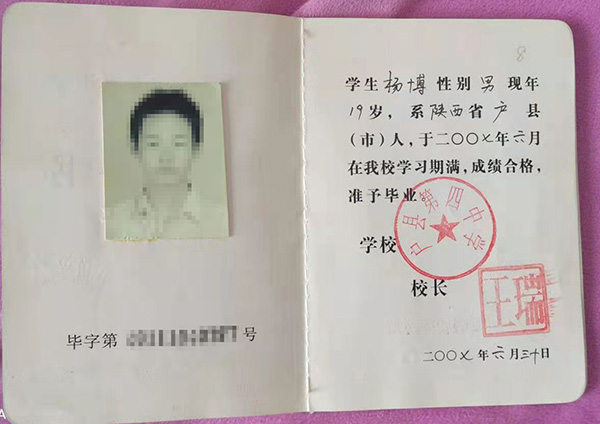 8
学生杨博性别男现年
19岁，系陕西省户县
（市）人，于二〇〇七年六月
在我校学习期满，成绩合格，
准予毕业
户县第四中学
学校
校长
王瑞
毕字第
号
二〇〇七年六月三十日
A